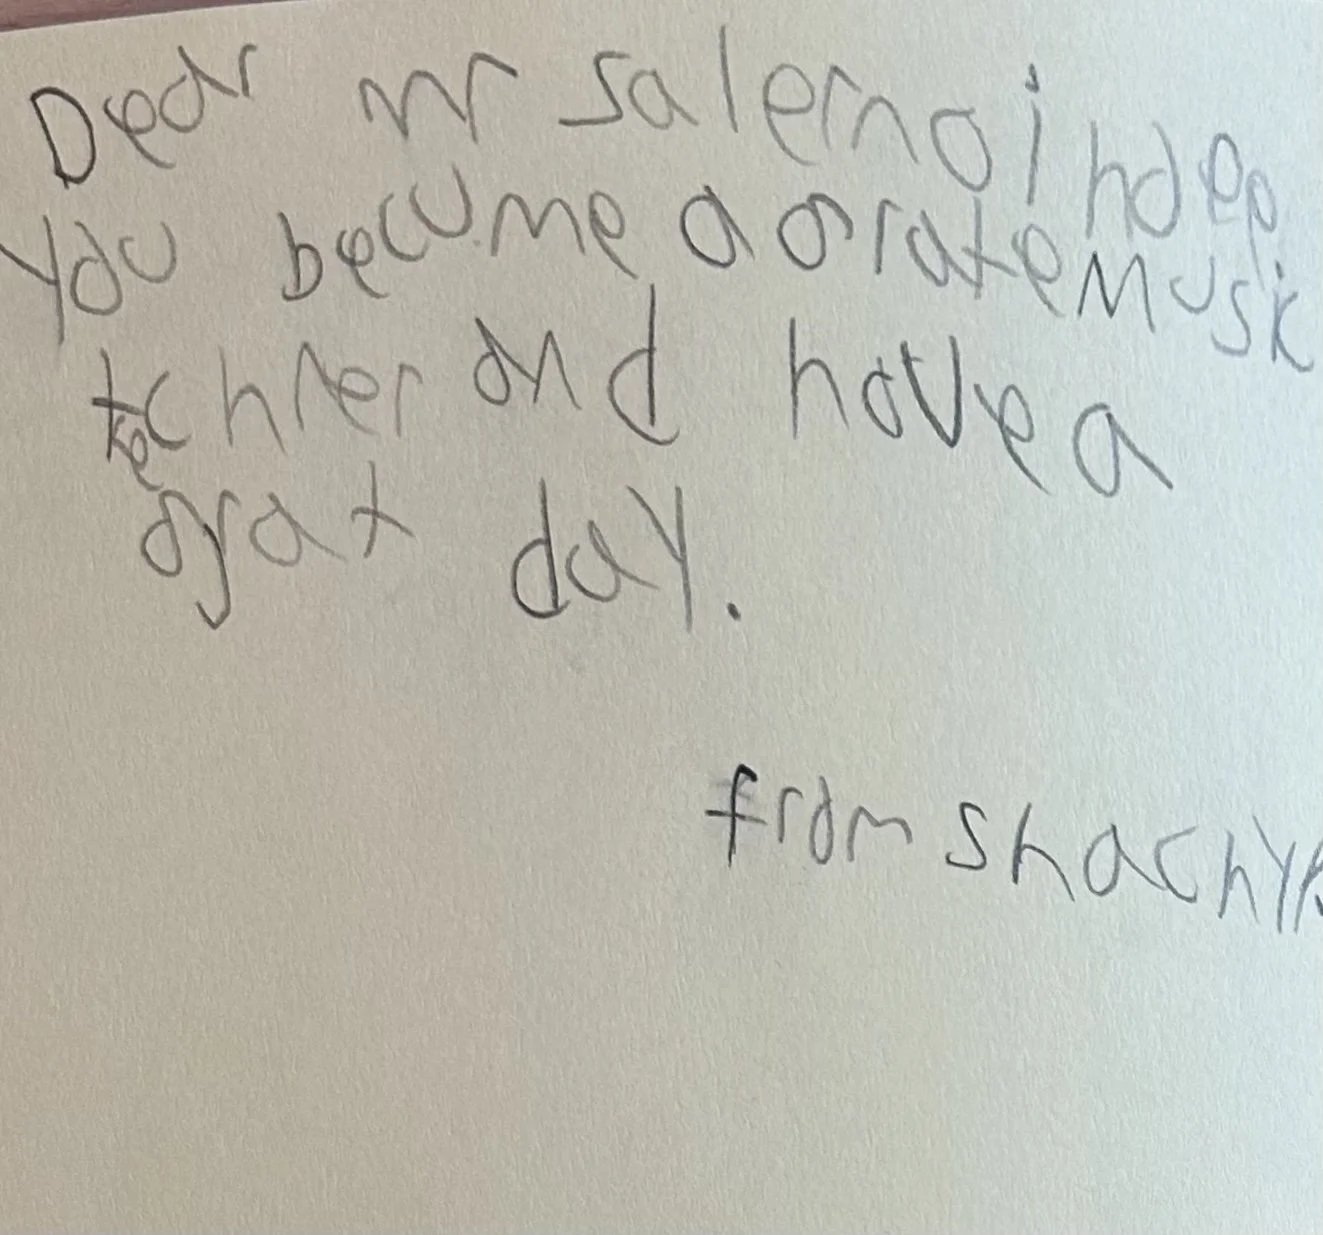 Dear mr salerno i hdep
you becume a grate musik
techrer and have a
grat day.
from shachy